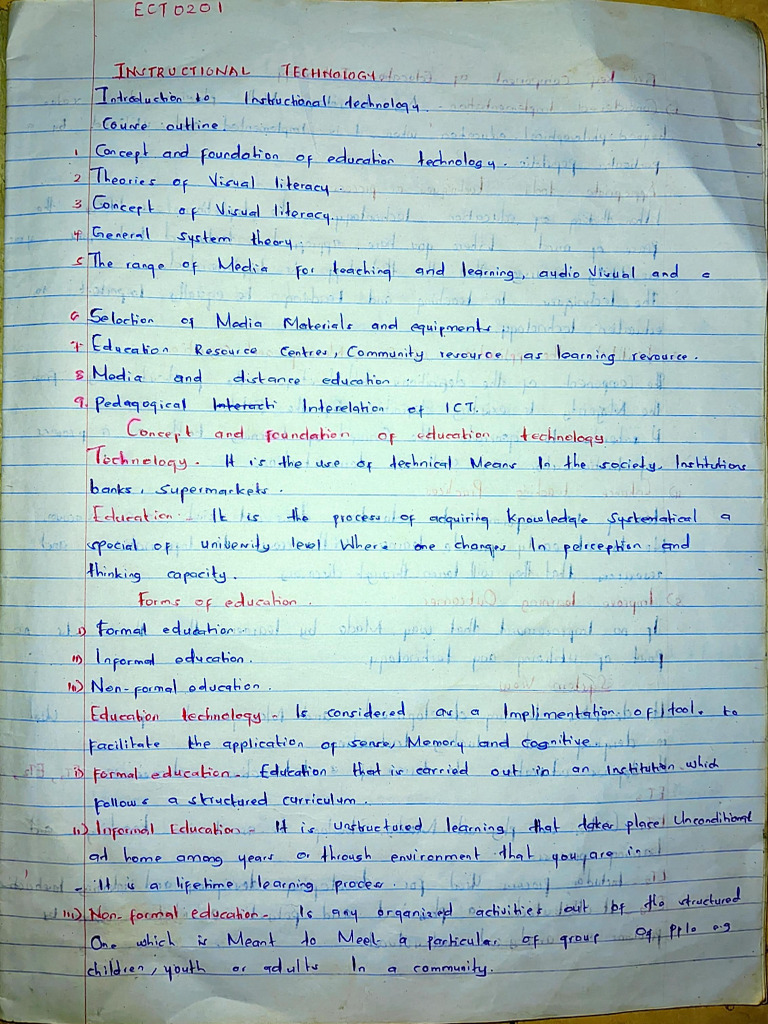 ECT 0201
INSTRUCTIONAL TECHNOLOGY
Introduction to Instructional technology.
Course outline.
1 Concept and foundation of education technology.
2 Theories of Visual literacy.
3 Concept of Visual literacy.
4 General system theory
5 The range of Media for teaching and learning, audio Visual and c
6 Selection of Media Materials and equipments
7 Education Resource Centres, Community resource as learning resource.
8 Media and distance education.
9. Pedagogical Interacti Interelation of ICT.
Concept and foundation of education technology
Technology. It is the use of technical Means In the society, Institutions
banks, supermarkets.
Education. It is the process of acquiring knowledge systematical a
special of university level Where one changes In perception and
thinking capacity.
Forms of education.
i) Formal education
ii) Informal education.
iii) Non-formal education.
Education technology - Is considered as a Implimentation of tools to
facilitate the application of sense, Memory and cognitive.
i) Formal education - Education that is carried out in an Institution which
follows a structured curriculum.
ii) Informal Education - It is unstructured learning, that takes place Unconditional
at home among years or through environment that you are in
- It is a lifetime learning process.
iii) Non-formal education - Is any organized activities out of the structured
One which is Meant to Meet a particular of group of pple e.g
children, youth or adults In a community.